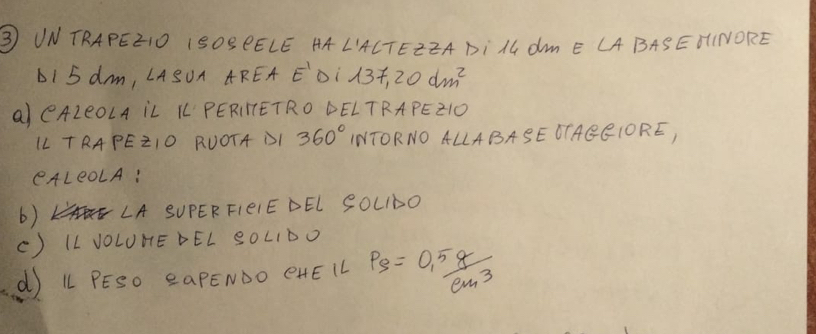 3) UN TRAPEZIO ISOSCELE HA L'ALTEZZA Di 14 dm E LA BASE MINORE
DI 5 dm, LA SUA AREA E' Di 137,20 dm²
a) CALCOLA iL IL PERIMETRO DEL TRAPEZIO
IL TRAPEZIO RUOTA DI 360° INTORNO ALLA BASE MAGGIORE,
CALCOLA:
b) LA SUPERFICIE DEL SOLIDO
c) IL VOLUME DEL SOLIDO
d) IL PESO SAPENDO CHE IL Ps = 0,5 g/cm³